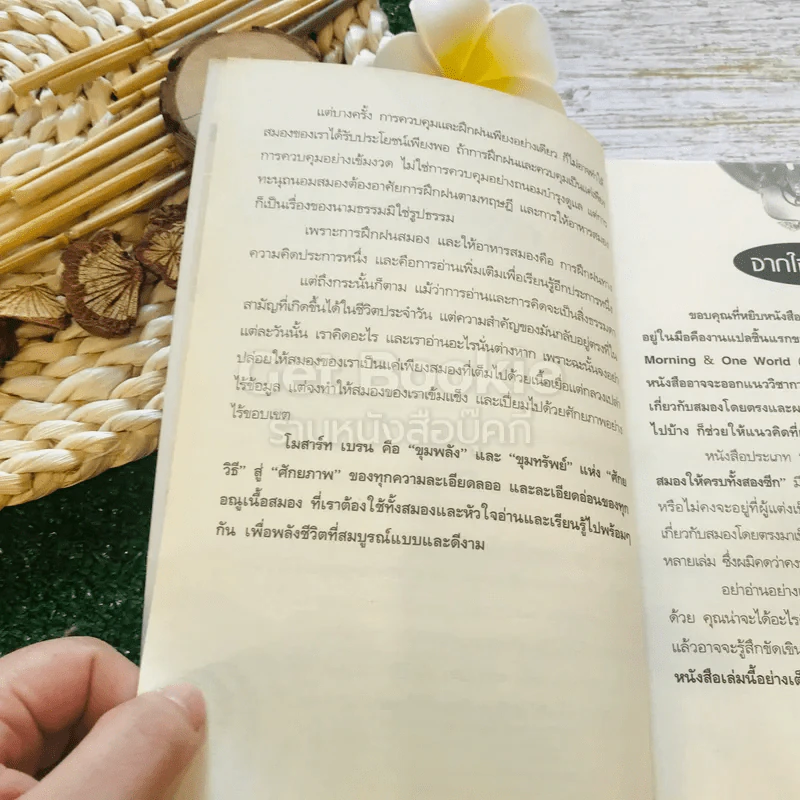 แต่บางครั้ง การควบคุมและฝึกฝนเพียงอย่างเดียว ก็ไม่อาจทำให้
สมองของเราได้รับประโยชน์เพียงพอ ถ้าการฝึกฝนและควบคุมเป็นแค่เพียง
การควบคุมอย่างเข้มงวด ไม่ใช่การควบคุมอย่างถนอมบำรุงดูแล แต่การ
ทะนุถนอมสมองต้องอาศัยการฝึกฝนตามทฤษฎี และการให้อาหารสมอง
ก็เป็นเรื่องของนามธรรมมิใช่รูปธรรม
เพราะการฝึกฝนสมอง และให้อาหารสมองคือ การฝึกฝนทาง
ความคิดประการหนึ่ง และคือการอ่านเพิ่มเติมเพื่อเรียนรู้อีกประการหนึ่ง
แต่ถึงกระนั้นก็ตาม แม้ว่าการอ่านและการคิดจะเป็นสิ่งธรรมดา
สามัญที่เกิดขึ้นได้ในชีวิตประจำวัน แต่ความสำคัญของมันกลับอยู่ตรงที่ใน
แต่ละวันนั้น เราคิดอะไร และเราอ่านอะไรนั่นต่างหาก เพราะฉะนั้นจงอย่า
ปล่อยให้สมองของเราเป็นแค่เพียงสมองที่เต็มไปด้วยเนื้อเยื่อแต่กลวงเปล่า
ไร้ข้อมูล แต่จงทำให้สมองของเราเข้มแข็ง และเปี่ยมไปด้วยศักยภาพอย่าง
ไร้ขอบเขต
โมสาร์ท เบรน คือ “ขุมพลัง” และ “ขุมทรัพย์” แห่ง “ศักย
วิธี” สู่ “ศักยภาพ” ของทุกความละเอียดลออ และละเอียดอ่อนของทุก
อณูเนื้อสมอง ที่เราต้องใช้ทั้งสมองและหัวใจอ่านและเรียนรู้ไปพร้อมๆ
กัน เพื่อพลังชีวิตที่สมบูรณ์แบบและดีงาม
ร้านหนังสือบุ๊คกี้
จากใจ
ขอบคุณที่หยิบหนังสือ
อยู่ในมือคืองานแปลชิ้นแรกข
Morning & One World
หนังสืออาจจะออกแนววิชากา
เกี่ยวกับสมองโดยตรงและผ
ไปบ้าง ก็ช่วยให้แนวคิดที่
หนังสือประเภท
สมองให้ครบทั้งสองซีก” มี
หรือไม่คงจะอยู่ที่ผู้แต่งเป็
เกี่ยวกับสมองโดยตรงมาเ
หลายเล่ม ซึ่งผมคิดว่าคง
อย่าอ่านอย่างเ
ด้วย คุณน่าจะได้อะไร
แล้วอาจจะรู้สึกขัดเขิน
หนังสือเล่มนี้อย่างเต็